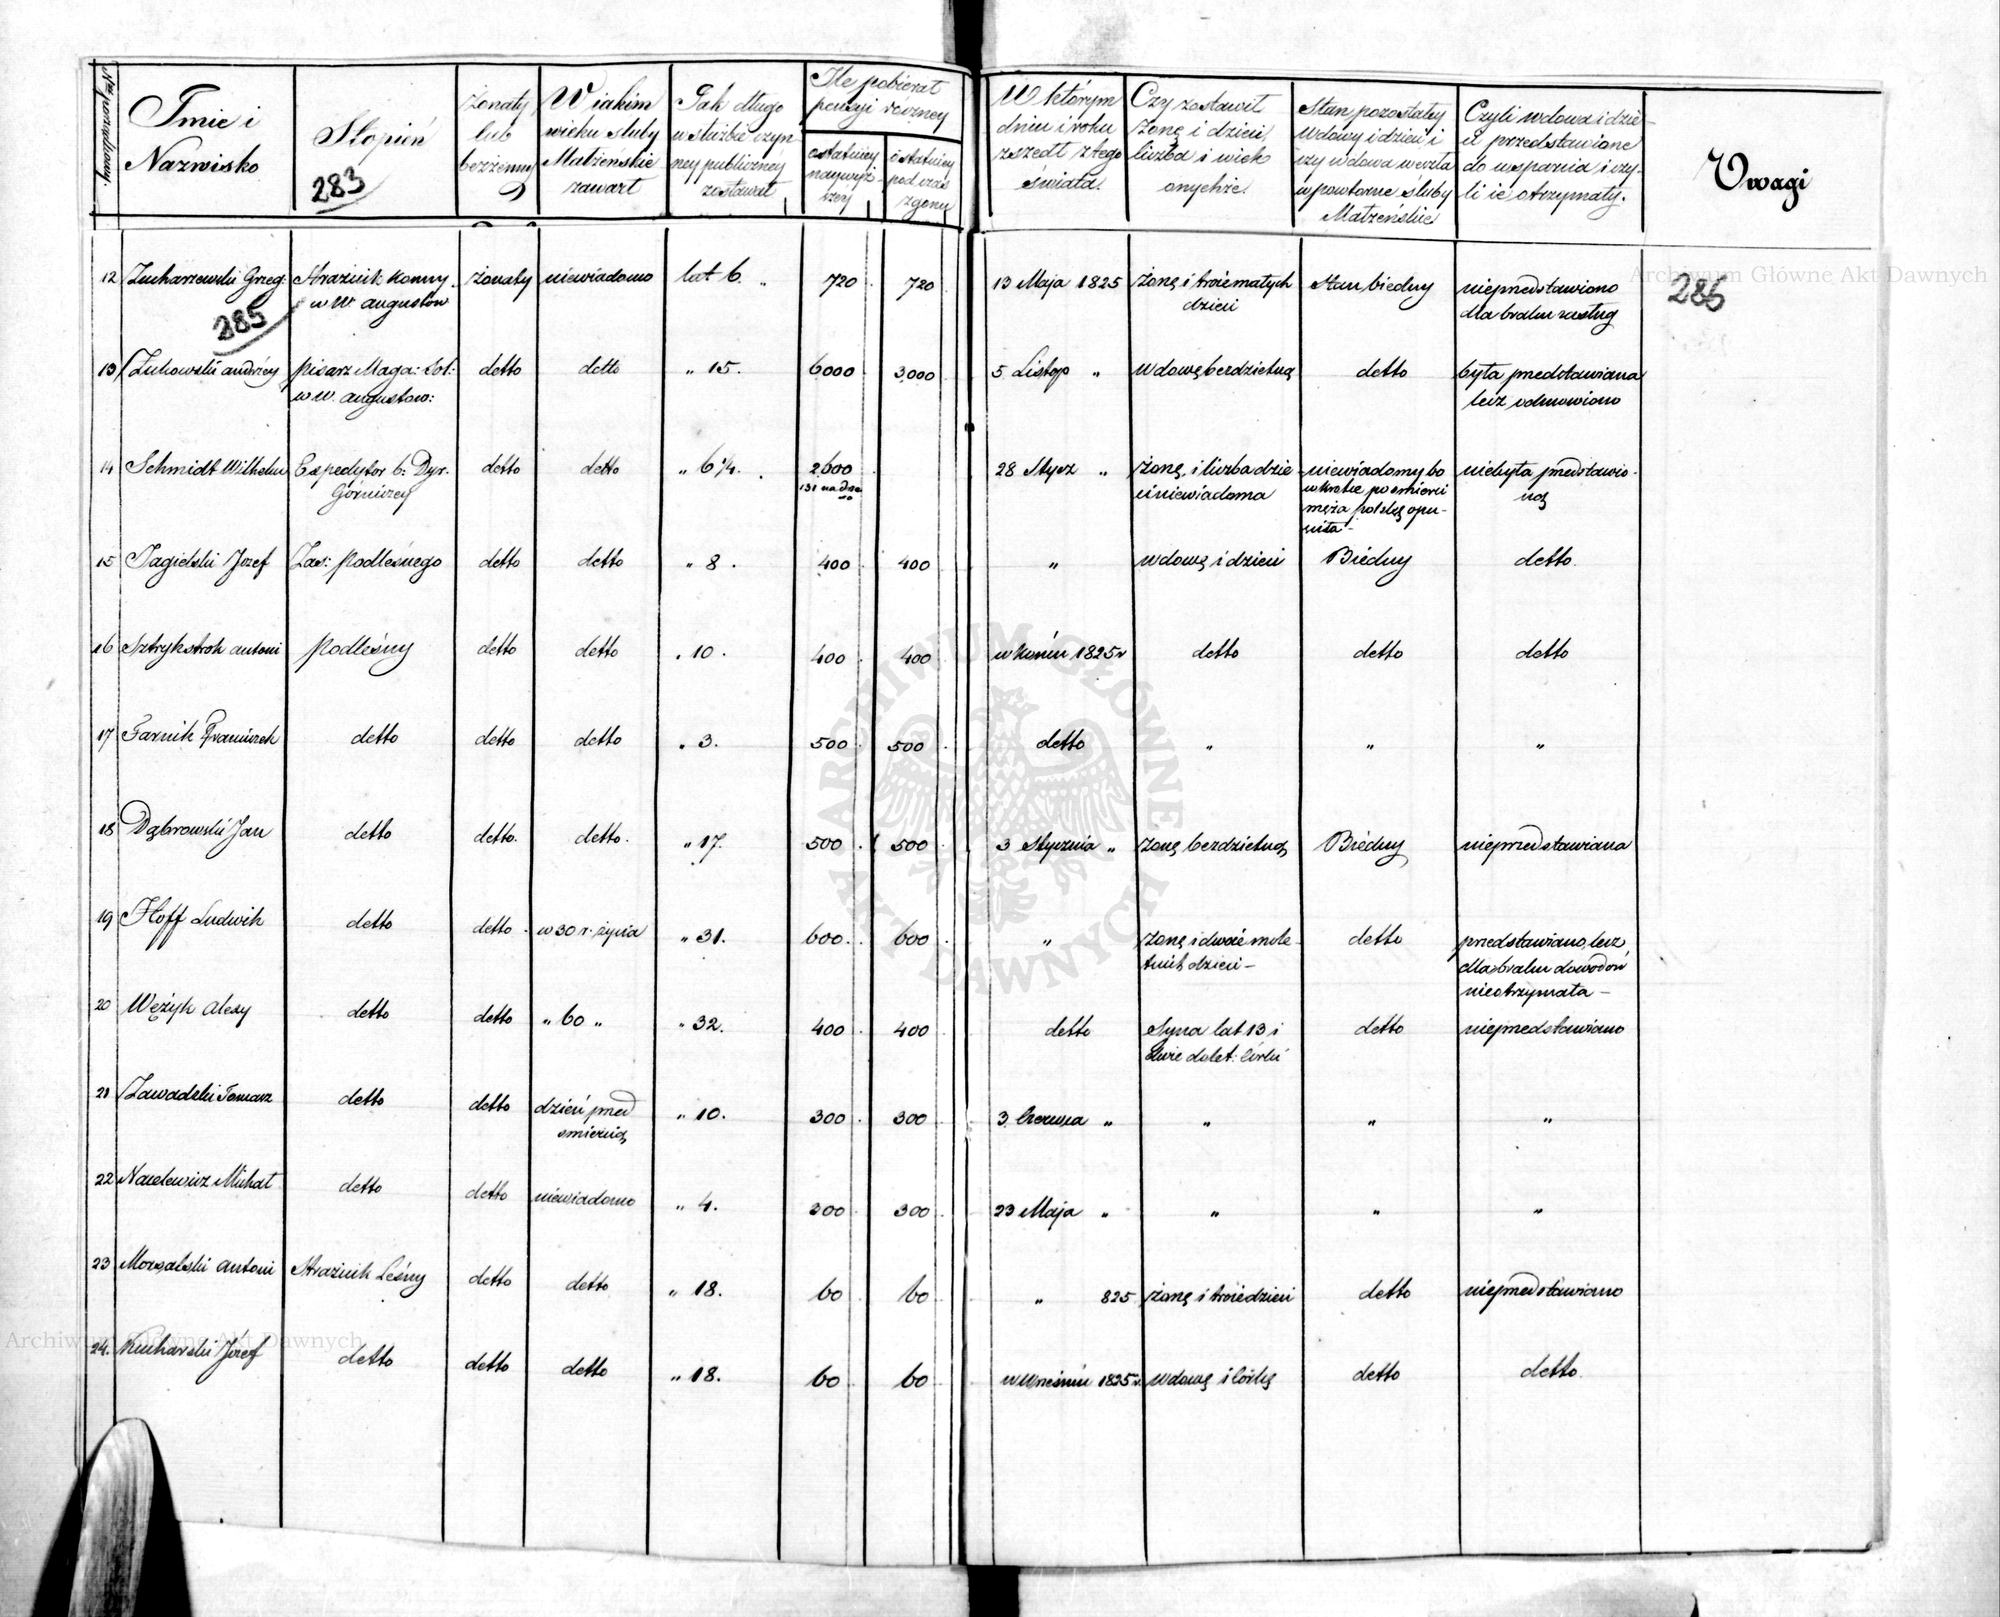 Nr porządkowy.
Imie i
Nazwisko
Stopień
283
Żonaty
lub
bezżenny
W iakim
wieku śluby
Małżeńskie
zawarł
Jak długo
w służbie czyn
ney publiczney
zostawał
Ile pobierał
pensyi roczney
ostatniey
naywyż-
széy
i statniey
podczas
zgonu
W którym
dniu i roku
zszedł z tego
świata.
Czy zostawił
Żonę i dzieci,
liczba i wiek
onychże.
Stan pozostałey
Wdowy i dzieci i
czy wdowa weszła
w powtorne śluby
Małżeńskie
Czyli wdowa i dzie-
ci przedstawione
do wsparcia i czy-
li ie otrzymały.
Uwagi
12 Zucharzewski Grzeg: Strażnik konny żonaty niewiadomo lat 6. „ 720 720 13 Maja 1825 żonę i troie małych Stan biedny nieprzedstawiono 286
285 w W. augustow dzieci dla braku zasług
13 Żukowski andrzey pisarz Maga: Sol: detto detto „ 15. 6000 3,000 5 Listop „ wdowę bezdzietną detto była przedstawiana
w W. augustow: lecz odmowiono
14 Schmidt Wilhelm Expedytor b: Dyr. detto detto „ 6 1/4. 2600 28 Stycz „ żonę, i liczba dzie- niewiadomy bo niebyła przedstawio-
Górniczey ci niewiadoma wkrotce po smierci ną
męża polskę opu-
ściła -
15 Jagielski Jozef Zas: podleśnego detto detto „ 8. 400 400 „ wdowę i dzieci Biédny detto.
16 Sztrykstrok antoni podleśny detto detto „ 10. 400 400 w koniu 1825 r detto detto detto
17 Farnik Franciszek detto detto detto „ 3. 500 500 detto „ „ „
18 Dąbrowski Jan detto detto. detto. „ 17. 500 500 3 Stycznia „ żonę bezdzietną Biédny nieprzedstawiana
19 Hoff Ludwik detto detto. w 30 r. życia „ 31. 600. 600 „ żonę i dwoie mało- detto przedstawiano, lecz
letnich dzieci - dla braku dowodow
nieotrzymała -
20 Wężyk alexy detto detto „ 60 „ „ 32. 400 400 detto Syna lat 13 i detto nieprzedstawiano
dwie dolet: córki
21 Zawadzki Tomasz detto detto dzień przed „ 10. 300 300 3 Czerwca „ „ „ „
smiercią
22 Michał detto detto niewiadomo „ 4. 300 300 23 Maja „ „ „ „
23 antoni Strażnik Leśny detto detto „ 18. 60 60 „ 825 żonę i troie dzieci detto nieprzedstawiono
24. Kucharski Józef detto detto detto „ 18. 60 60 w Wrześniu 1825 r. wdowę i córkę detto detto.
Archiwum Główne Akt Dawnych
Archiwum Główne Akt Dawnych
ARCHIWUM GŁÓWNE AKT DAWNYCH